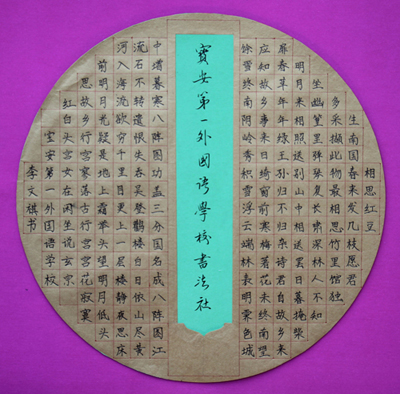 相思红豆
生南国春来发几枝愿君
多采撷此物最相思竹里馆独
坐幽篁里弹琴复长啸深林人不知
明月来相照送别山中相送罢日暮掩柴
扉春草年年绿王孙归不归杂诗君自故乡来
应知故乡事来日绮窗前寒梅著花未终南望
余雪终南阴岭秀积雪浮云端林表明霁色城
寳安第一外國語學校書法社
中增暮寒八阵图功盖三分国名成八阵图江
流石不转遗恨失吞吴登鹳楼白日依山尽黄
河入海流欲穷千里目更上一层楼静夜思床
前明月光疑是地上霜举头望明月低头
思故乡行宫寥落古行宫宫花寂寞
红白头宫女在闲坐说玄宗
宝安第一外国语学校
李文棋书